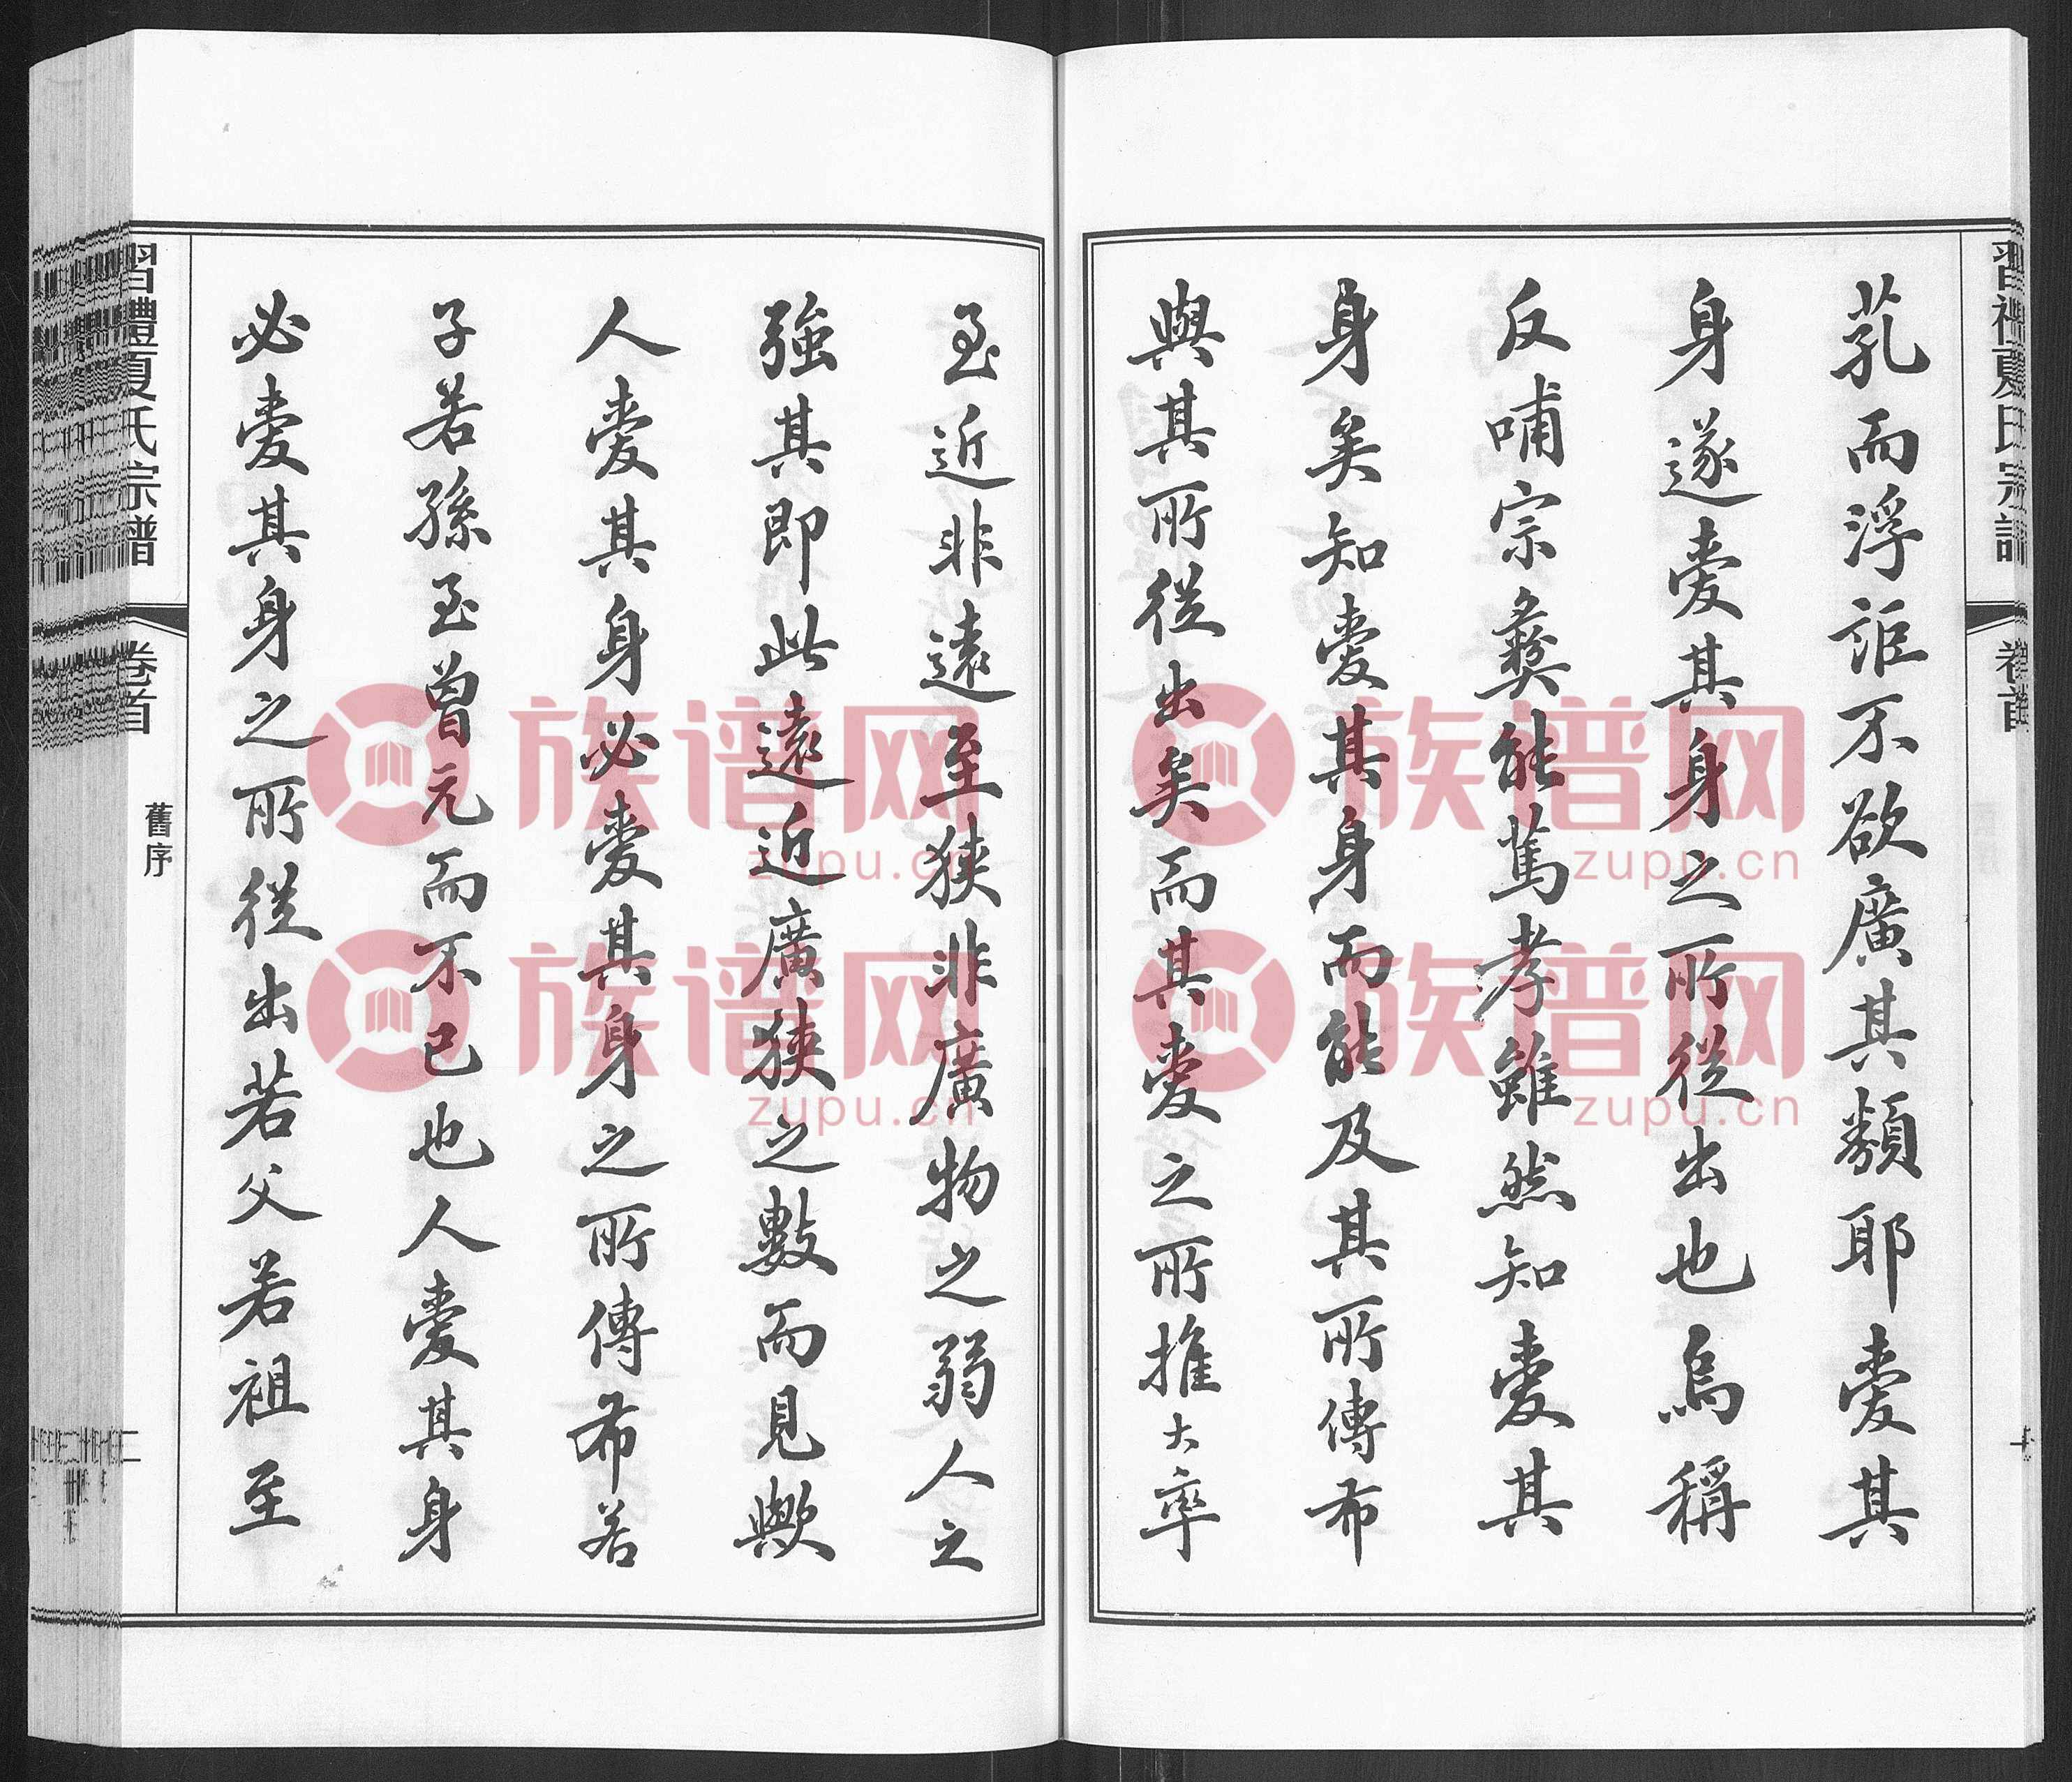 習禮夏氏宗譜
卷首
乳而浮詎不欲廣其類耶愛其
身遂愛其身之所從出也烏稱
反哺宗彝能篤孝雖然知愛其
身矣知愛其身而能及其所傳布
與其所從出矣而其愛之所推大率
至近非遠至狹非廣物之弱人之
強其即此遠近廣狹之數而見歟
人愛其身必愛其身之所傳布若
子若孫至曾元而不已也人愛其身
必愛其身之所從出若父若祖至
習禮夏氏宗譜
卷首
舊序
族谱网
zupu.cn
族谱网
zupu.cn
族谱网
zupu.cn
族谱网
zupu.cn